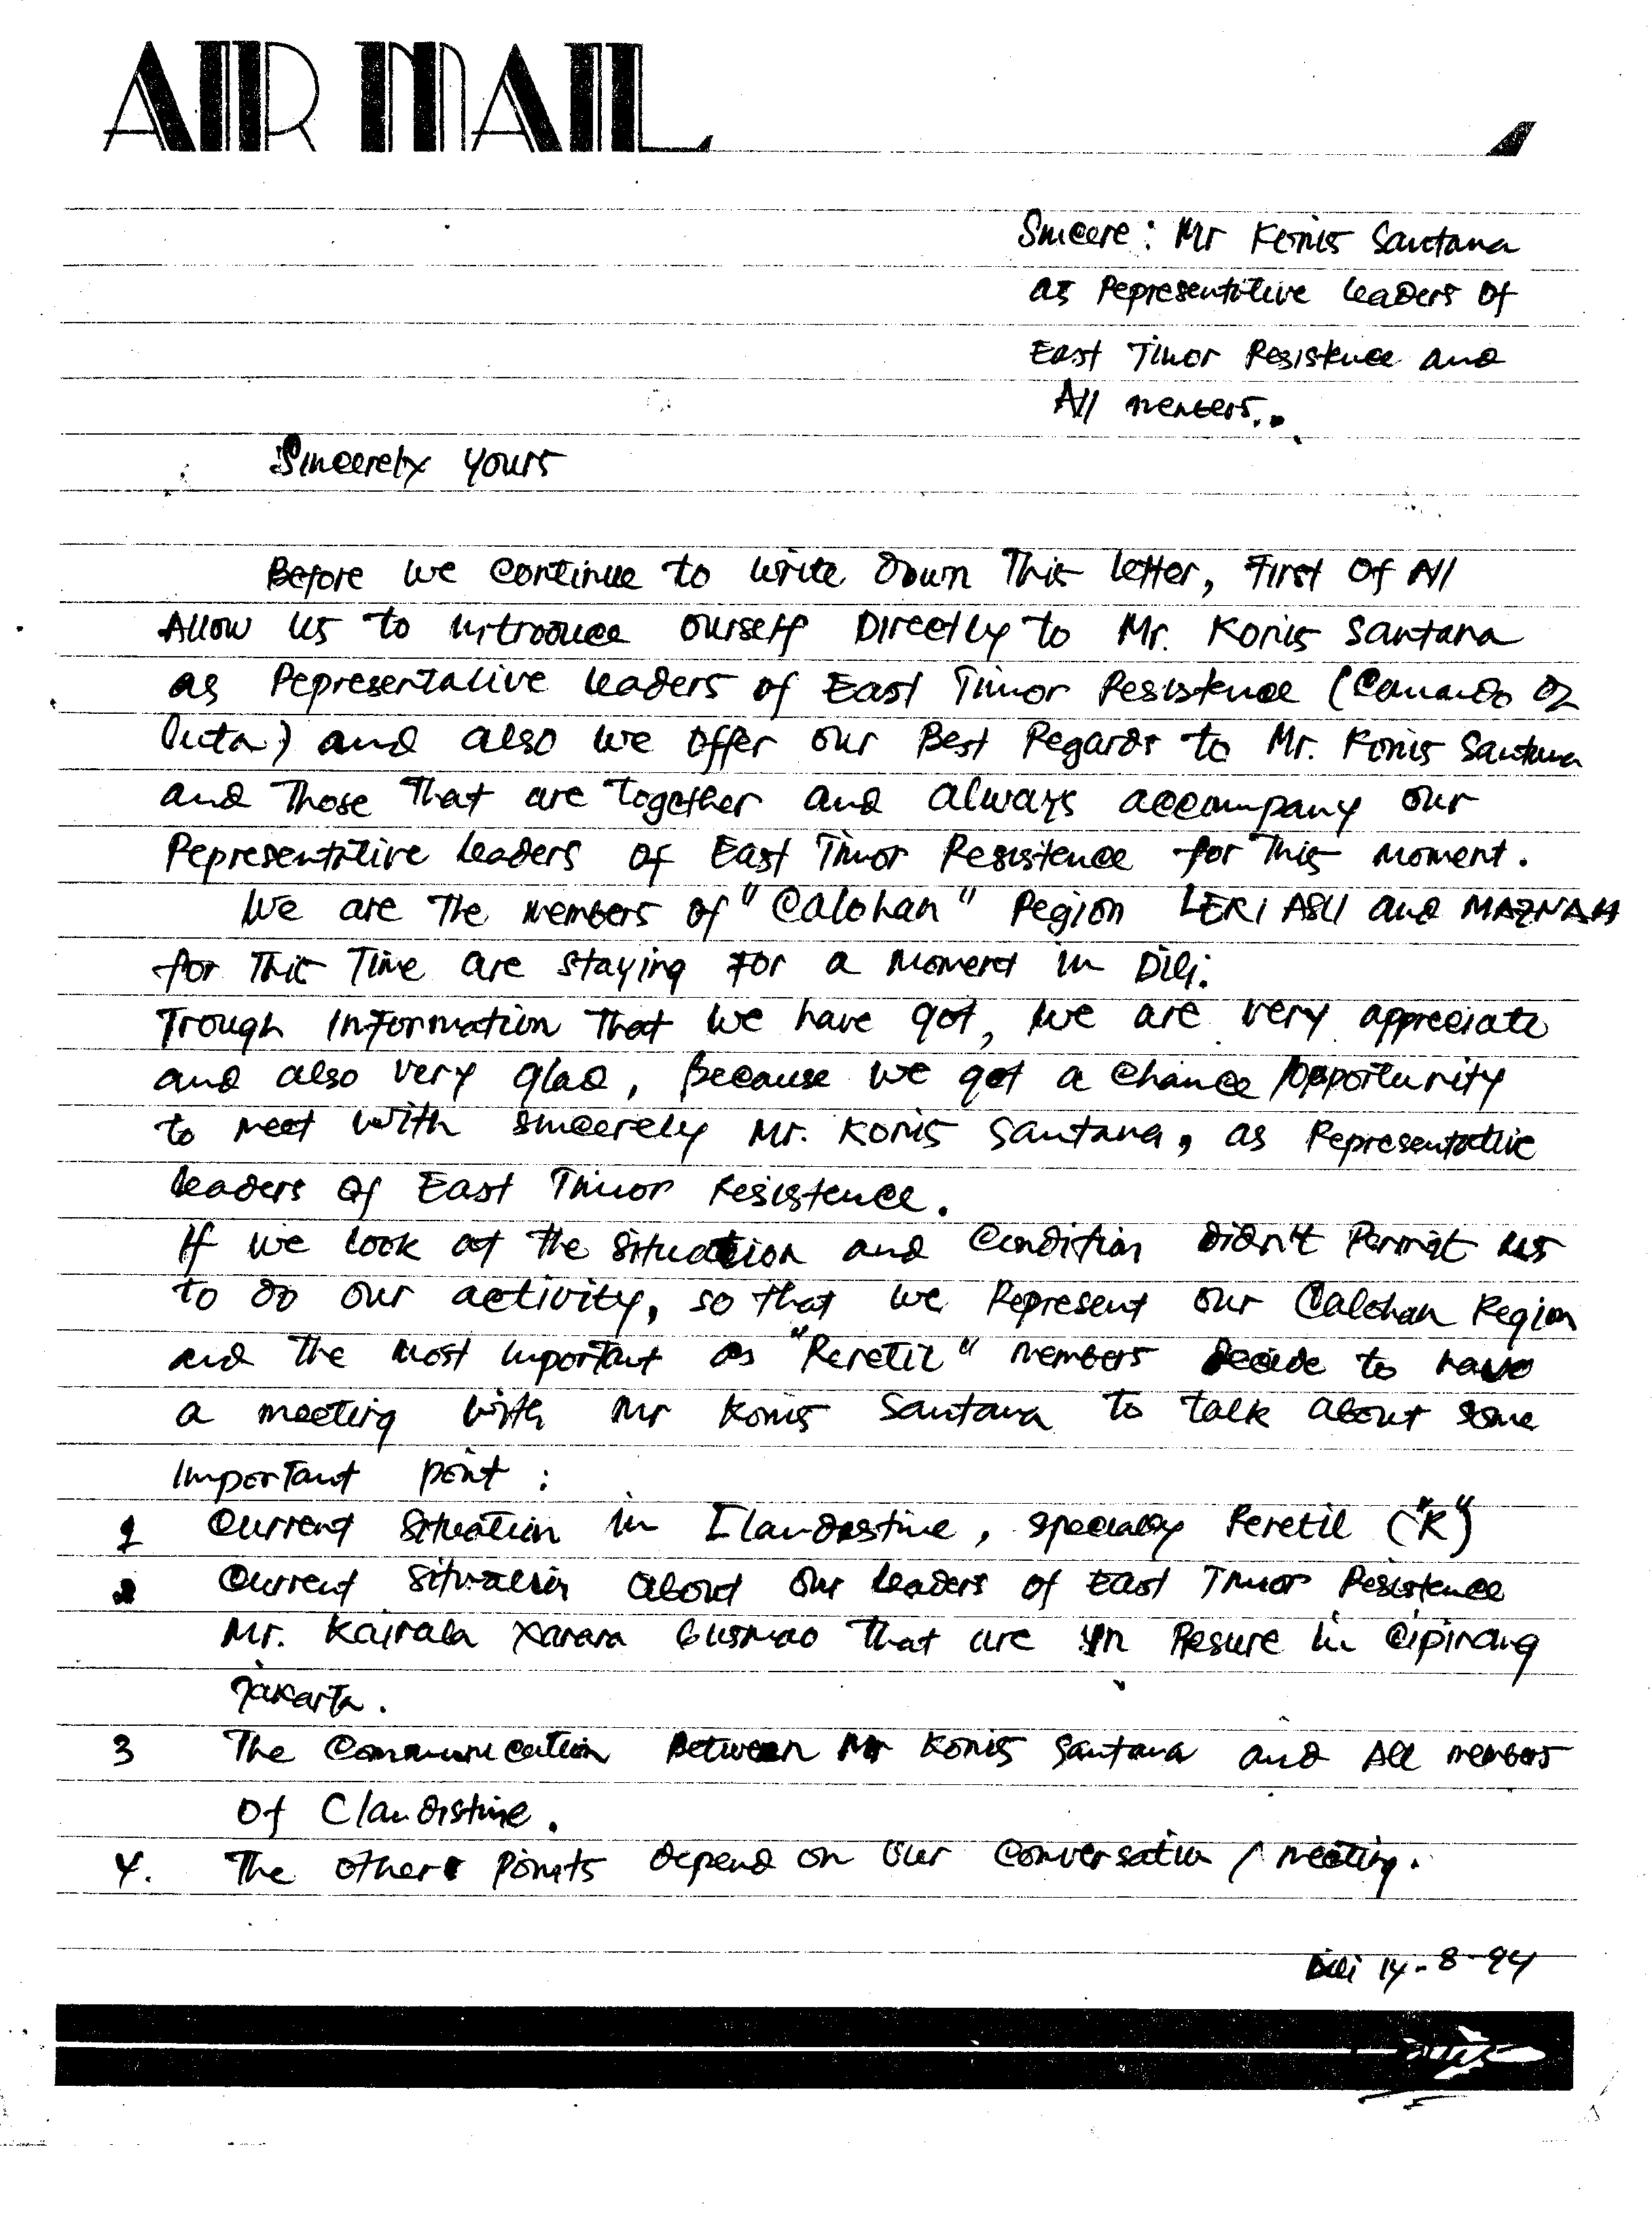 AIR MAIL
Sincere: Mr Konis Santana
as Representative leaders of
East Timor Resistence and
All members..
Sincerely yours
Before we continue to write down This letter, First of All
Allow us to introduce ourself Directly to Mr. Konis Santana
as Representative leaders of East Timor Resistence (Comando da
Luta) and also we offer our Best Regards to Mr. Konis Santana
and Those That are Together and always accompany our
Representative leaders of East Timor Resistence for This moment.
We are The members of "Calohan" Region LERI ASU and MAZNAH
for This Time are staying For a Moment in Dili.
Trough Information That we have got, we are very appreciate
and also very glad, Because we get a chance /opportunity
to meet with sincerely Mr. Konis Santana, as Representative
leaders of East Timor Resistence.
If we look at the situation and Condition Didn't Permit us
to do our activity, so that we Represent our Calohan Region
and The most Important as "Reretil" members Decide to have
a meeting with Mr Konis Santana to talk about some
Important point :
1 Current Situation in Clandestine, specialy Reretil ("R")
2 Current Situation about our leaders of East Timor Resistence
Mr. Kairala Xanana Gusmao That are in in Cipinang
Jakarta.
3 The Communication Between Mr Konis Santana and All members
of Clandistine.
4. The other Points depend on Our Conversation / meeting.
Dili 14-8-94